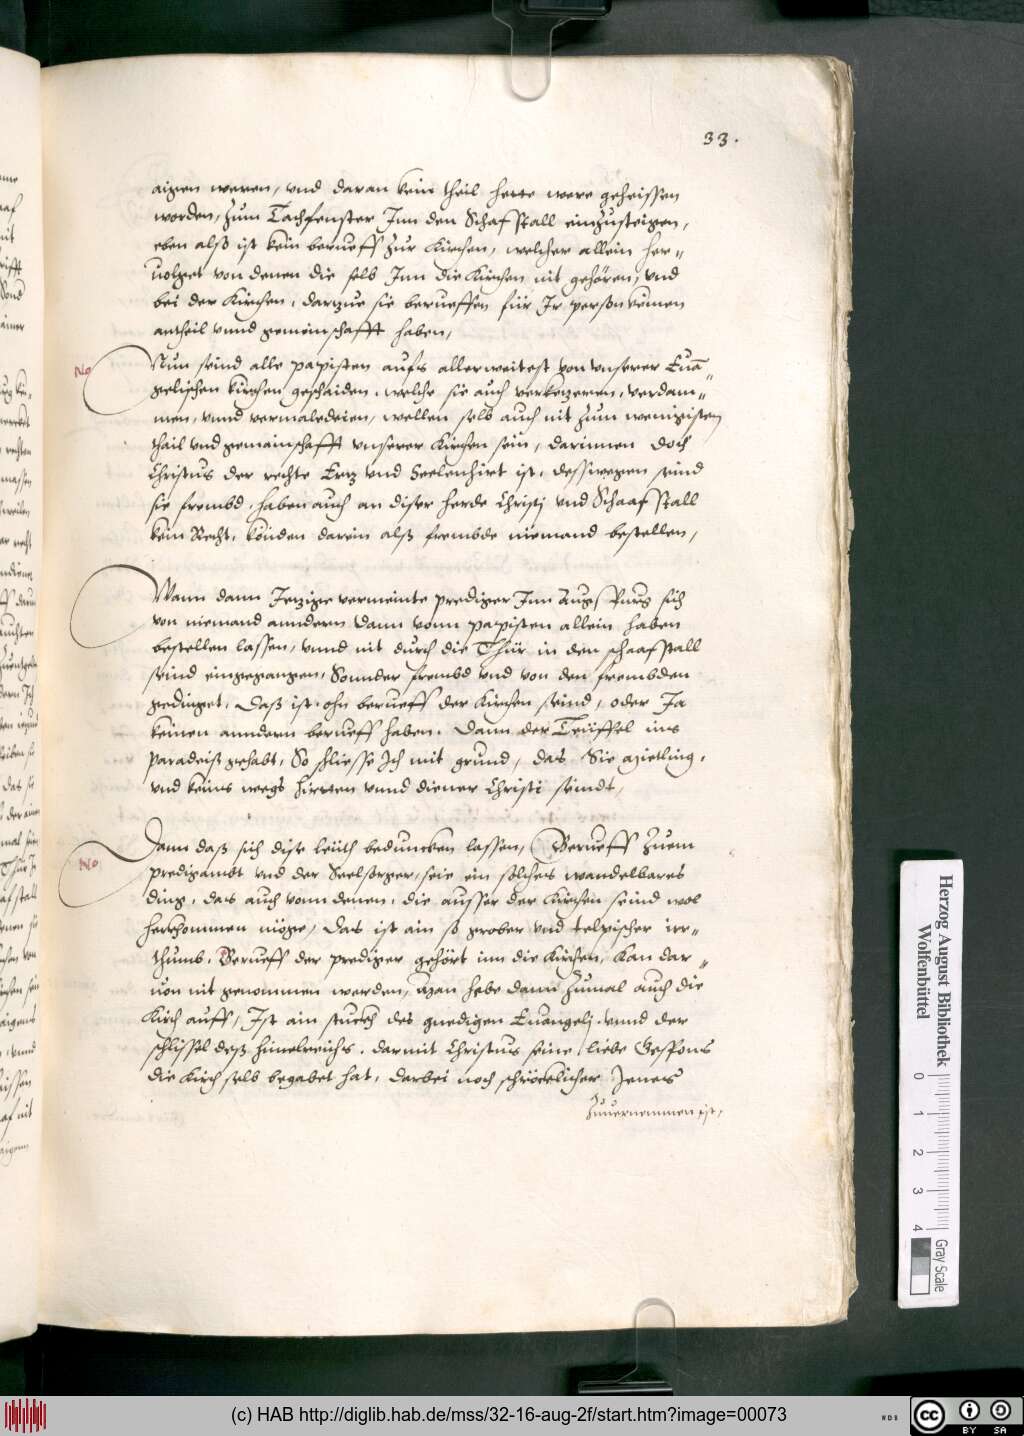 33.
aigen weren, vnd daran kein theil hette were geheissen
worden, zum Tachfenster Inn den Schafstall einzusteigen,
eben alß ist kein berueff zur Kirchen, welcher allein her=
uolget von denen die selb Inn die Kirchen nit gehören, vnd
bei der Kirchen, darzue sie berueffen für Ir person keinen
antheil vnnd gemeinschafft haben,
No
Nun seind alle papisten aufs allerweitest von vnserer Euā=
gelischen kirchen gescheiden, welche sie auch verketzeren, verdam=
men, vnnd vermaledeien, wellen selb auch nit zum wenigisten
theil vnd gemainschafft vnserer Kirchen sein, darinnen doch
Christus der rechte Ertz vnd Seelenhirt ist, desswegen seind
sie frembd, haben auch an diser herde Christj vnd Schaafstall
kein Recht, könden darein alß frembde niemand bestellen,
Wann dann Jetzige vermeinte prediger Inn Augspurg sich
von niemand anndern dann vonn papisten allein haben
bestellen lassen, vnnd nit durch die Thür in den schaafstall
seind eingegangen, Sonnder frembd vnd von den frembden
gedinget, Daß ist ohn berueff der Kirchen seind, oder Ja
keinen anndern berueff haben, Dann der Teüffel ins
paradeiß gehabt, So schliesse Ich mit grund, das Sie Mietling,
vnd keins wegs hirtten vnnd diener Christi seindt,
No
Dann daß sich dise leüth beduncken lassen, Berueff zuem
predigambt vnd der Seelsorger, seie ein solches wandelbares
ding, das auch vonn denen, die ausser der Kirchen seind wol
herkhommen möge, Das ist ain so grober vnd telpischer irr=
thumb, Berueff der prediger gehört inn die Kirchen, kan dar=
uon nit genommen werden, Man hebe dann zumal auch die
Kirch auff, Ist ain stuckh des gnedigen Euangelj vnnd der
schlissel deß himelreichs, darmit Christus seine liebe Gespons
die Kirch selb begabet hat, darbei noch schröcklicher Jenes
zuuernemmen ist,
Herzog August Bibliothek
Wolfenbüttel
0 1 2 3 4
Gray Scale
(c) HAB http://diglib.hab.de/mss/32-16-aug-2f/start.htm?image=00073
WDB
cc
BY SA